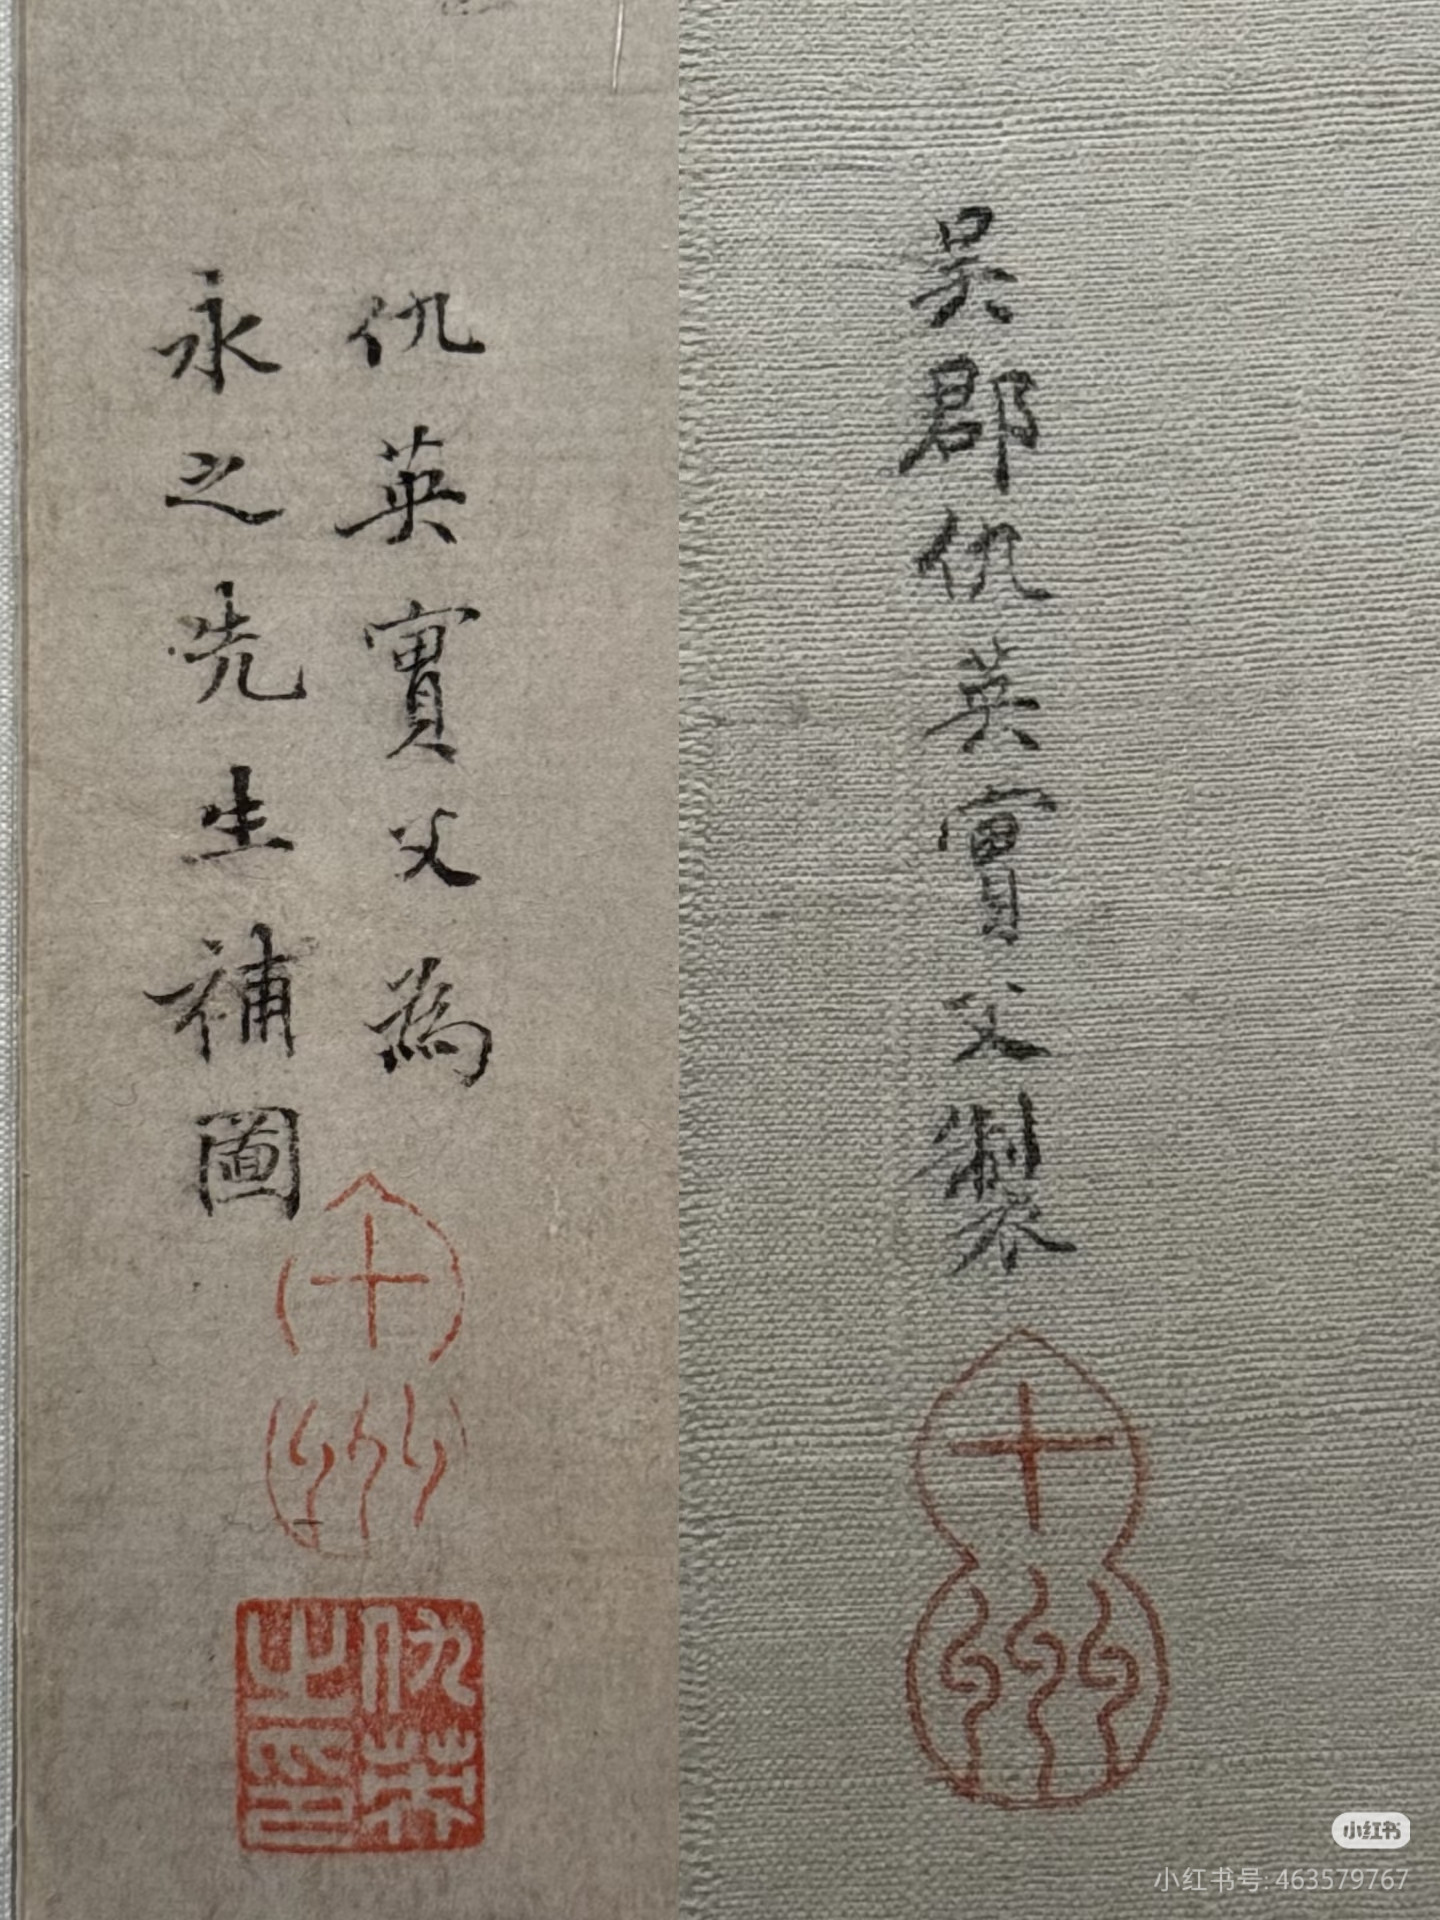 仇英實父為
永之先生補圖
十州
仇英
之印
吳郡仇英實父製
十州
小红书
小红书号: 463579767